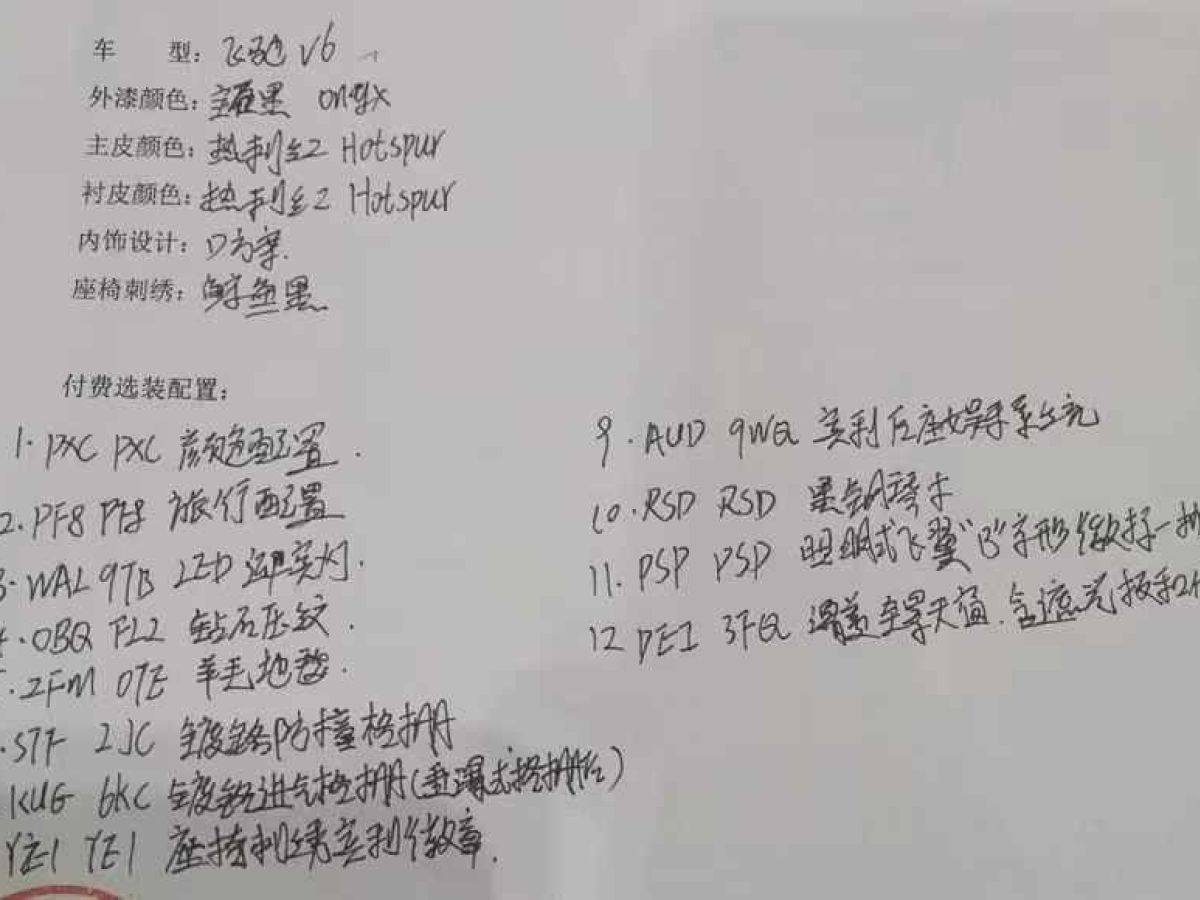 车 型：飞驰 V6
外漆颜色：宝石黑 Onyx
主皮颜色：热刺红 Hotspur
衬皮颜色：热刺红 Hotspur
内饰设计：D方案.
座椅刺绣：鲸鱼黑
付费选装配置：
1. PXC PXC 颜色配置.
2. PF8 PF8 旅行配置
3. WAL 9TB LED 迎宾灯.
4. OBQ FL2 钻石压纹.
. 2FM 0TE 羊毛地毯.
. STF 2JC 镀铬防撞格栅
KUG 6KC 镀铬进气格栅(垂瀑式格栅)
YE1 YE1 座椅刺绣宾利徽章.
9. AUD 9WQ 宾利后座娱乐系统
10. RSD RSD 黑钢琴木
11. PSP PSP 照明式飞翼"B"字形徽标一
12 DEI 3FQ 全景天窗.含遮光板和